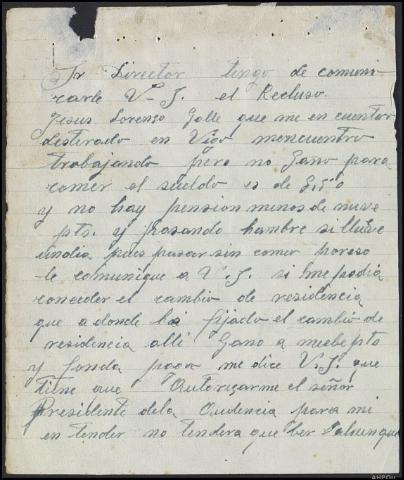 Sr Director tengo de comuni-
carle V. S. el Recluso.
Jesus Lorenzo Galle que me en cuentor
desterado en Vigo mencuentro
trabajando pero no Gano para
comer el sueldo es de
y no hay pension menos de nueve
pts. y pasando hambre si llueve
undia pues pasar sin comer poreso
le comunique a V. S. si me podia
conceder el cambio de residencia
que a donde fijado el cambio de
residencia alli Gano a nuebe pts
y fonda me dice V. S. que
tiene que Autorizarme el señor
Presidente dela Audencia para mi
en tender no tendera que ber
AHPOU